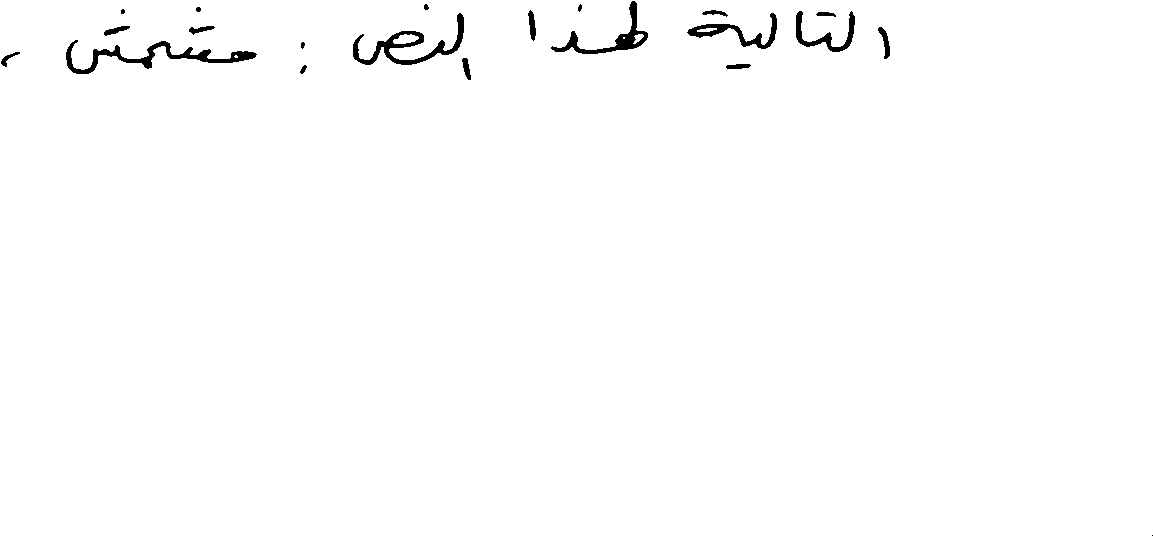 التالية لهذا النص : مشمش ،